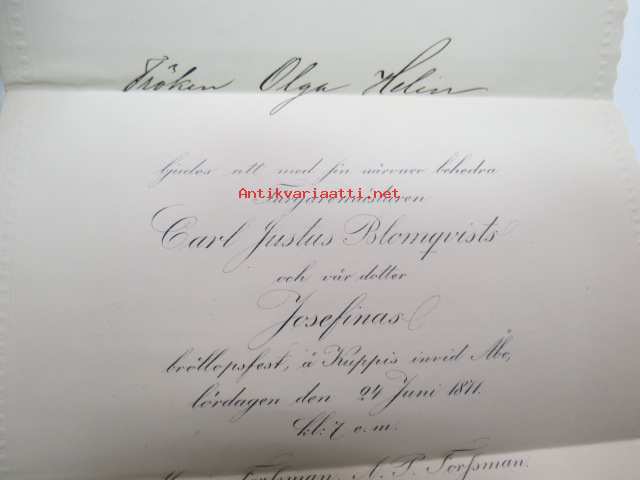 Fröken Olga Helin
bjudes att med sin närvaro behedra
Antikvariaatti.net
Färgaremästaren
Carl Justus Blomqvists
och vår dotter
Josefinas
bröllopsfest, å Kuppis invid Åbo,
lördagen den 24 Juni 1871.
kl: 7 e. m.
Forssman. A. P. Forssman.